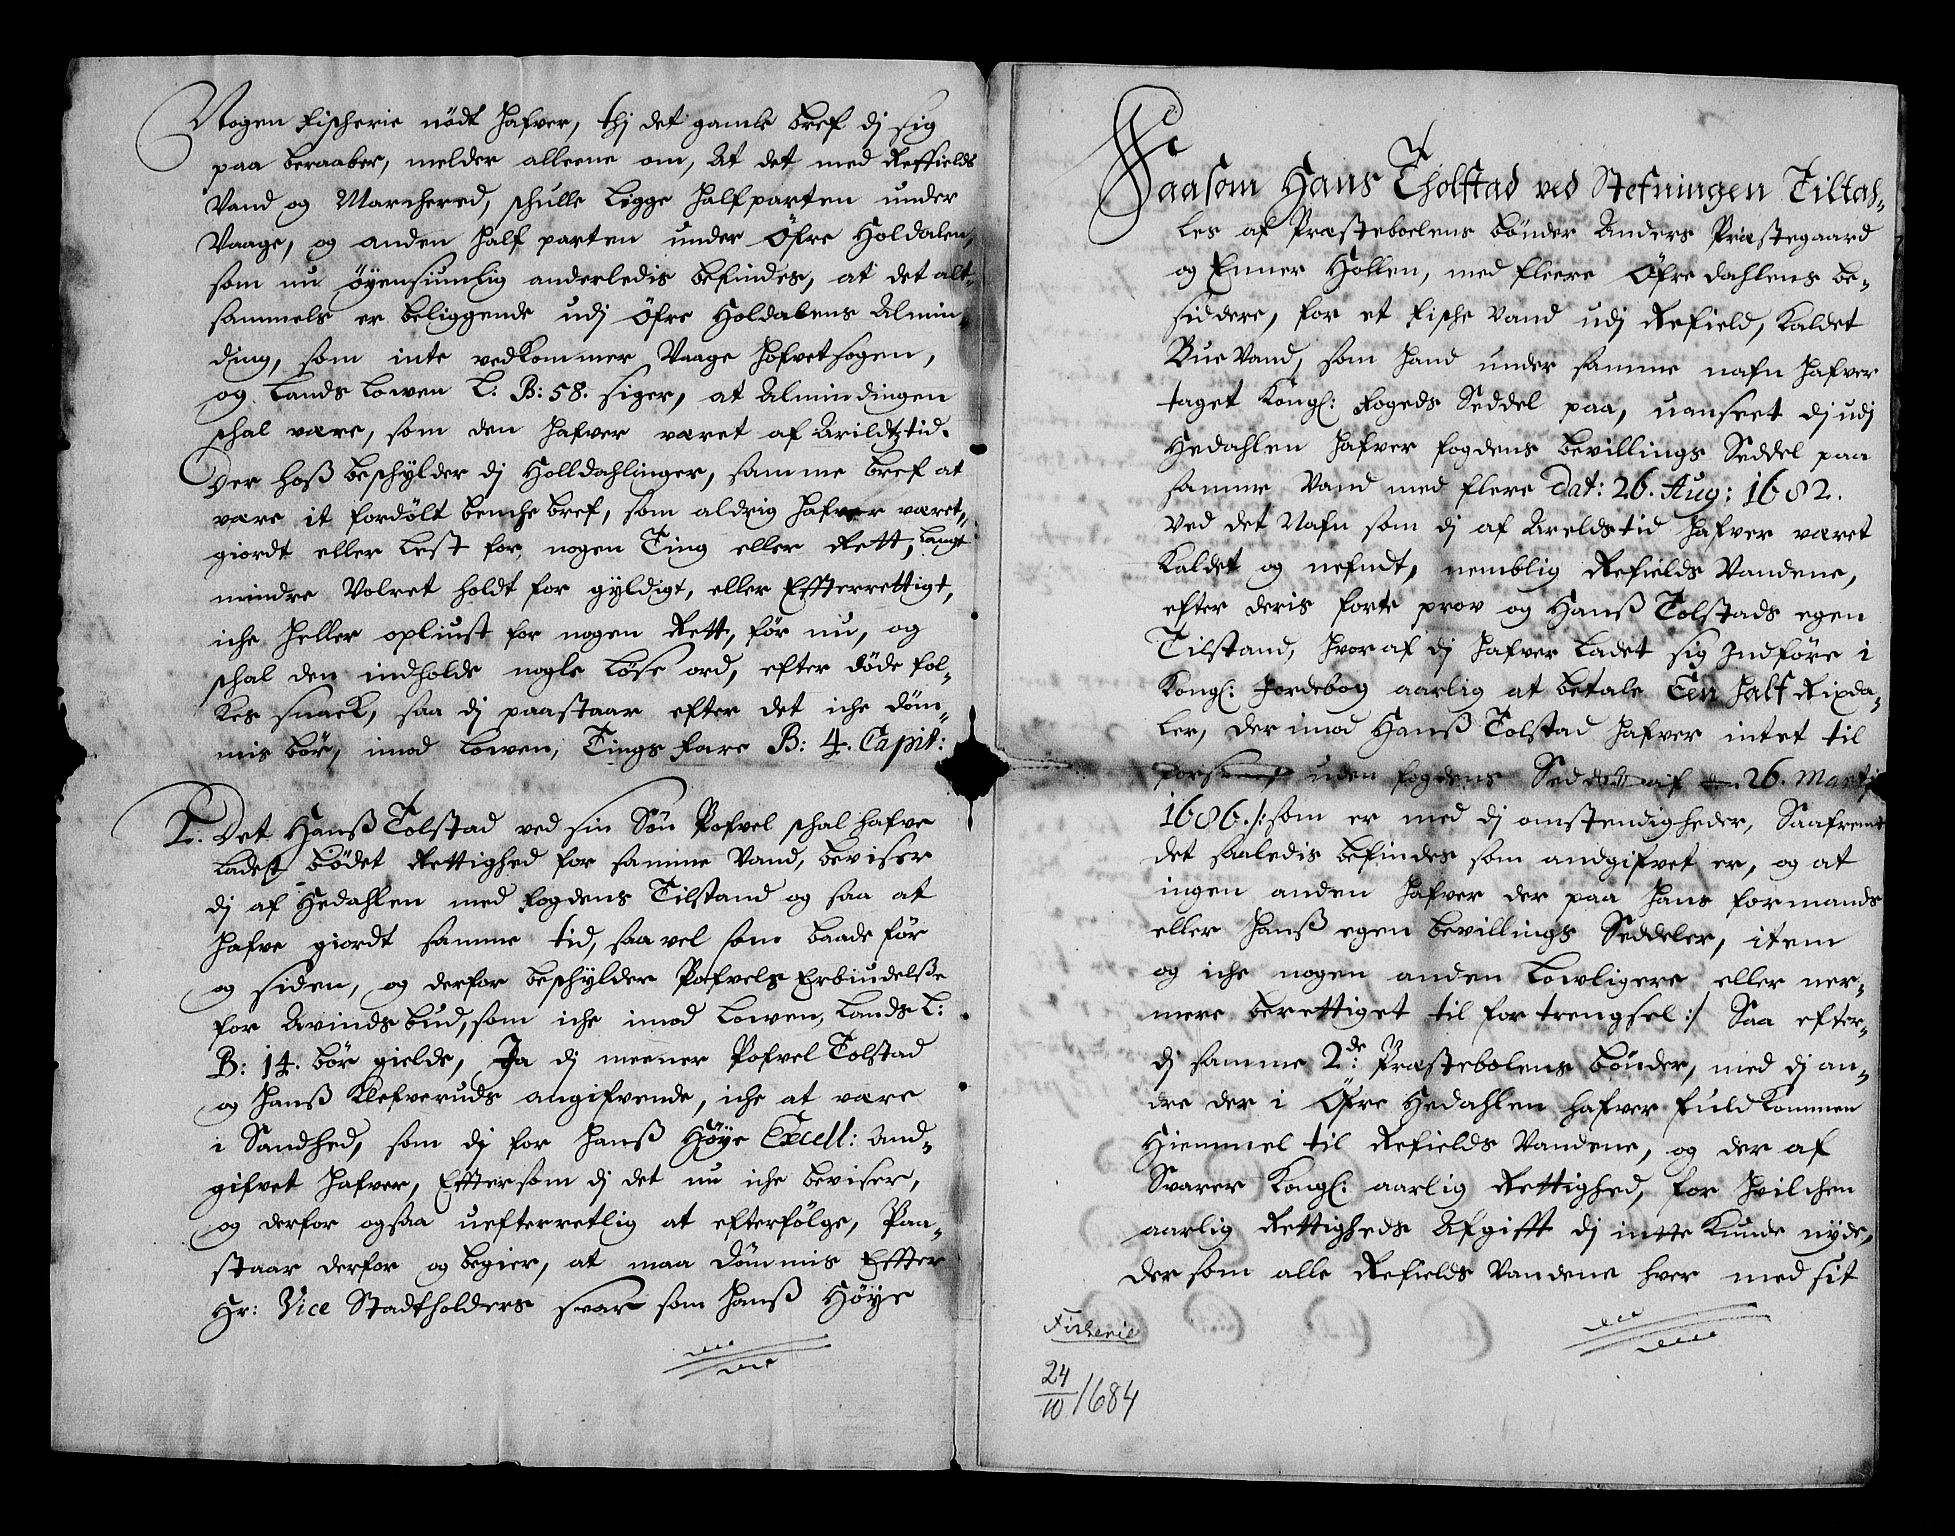 Nogen fischerie nödt hafver, thj det gamle bref dj sig
paa beraaber, melder alleene om, At det med Reffields
Vand og Marchered, schulle ligge halfparten under
Vaage, og anden half parten under Öfre Holdalen,
som nu öyensiunlig anderledis befindes, at det alt-
sammels er beliggende udj Öfre Holdalens Almin-
ding, som inte vedkommer Vaage hofvetsogen,
og Lands Lowen L: B: 58. siger, at Almindingen
schal være, som den hafver været af Arildtztid.
Der hoß beschylder dj Holldahlinger, samme bref at
være it fordölt benche bref, som aldrig hafver været,
giordt eller lest for nogen Ting eller Rett, langt
mindre Volret holdt for gyldigt, eller Effterrettigt,
iche heller opliust for nogen Rett, för nu, og
schal den indholde nogle löse ord, efter döde fol-
kes snack, saa dj paastaar efter det iche döm-
mis bör, imod Lowen, Tings fare B: 4. Capit:
2. Det Hanß Tolstad ved sin Sön Pofvel schal hafve
ladet bödet Rettighed for samme Vand, beviser
dj af Hedahlen med fogdens Tilstand og saa at
hafve giordt samme tid, saa vel som baade för
og siden, og derfor beschylder Pofvels Erbiudelße
for Avinds bud, som iche imod Lowen, Lands L:
B: 14. bör gielde, Ja dj meener Pofvel Tolstad
og Hanß Klefveruds angifvende, iche at være
i Sandhed, som dj for hanß Höye Excell: And-
gifvet hafver, Efftersom dj det nu iche beviser,
og derfor ogsaa uefterretlig at efterfölge, Paa-
staar derfor og begier, at maa Dömmis Effter
Hr: Vice Stadtholders svar som hanß Höye
Saasom Hans Tholstad ved Stefningen Tiltah-
les af Præsteboelens bönder Anders Præstegaard
og Enner Hollen, med fleere Öfre dahlens be-
siddere, for et fische Vand udj Refield, kaldet
Bue Vand, som hand under samme nafn hafver
taget Kongl: fogeds Seddel paa, uanseet dj udj
Hedahlen hafver fogdens bevillings Seddel paa
samme Vand med flere Dat: 26. Aug: 1682.
Ved det Nafn som dj af Areldstid hafver været
kaldet og nefndt, nemblig Refields Vandene,
efter deris forte prov og Hanß Tolstads egen
Tilstand, hvoraf dj hafver Ladet sig Jndföre i
Kongl: Jordebog aarlig at betale Een half Rixda-
ler, der imod Hanß Tolstad hafver intet til
uden fogdens Seddel af 26. Martj
1686./: som er med dj omstendigheder, Saafremt
det saaledis befindes som andgifvet er, og at
ingen anden hafver der paa hans formands
eller hanß egen bevillings Seddeler, item
og iche nogen anden Lowligere eller ner-
mere berettiget til fortrengsel :/ Saa efter-
dj samme 2de: Præstebolens bönder, med dj an-
dre der i Öfre Hedahlen hafver fuldkommen
Hiemmel til Refields Vandene, og der af
Svarer Kongl: aarlig Rettighed, for hvilchen
aarlig Rettigheds Afgifft dj intte kunde nyde,
dersom alle Refields Vandene hver med sit
Fischerie
24/10 1684